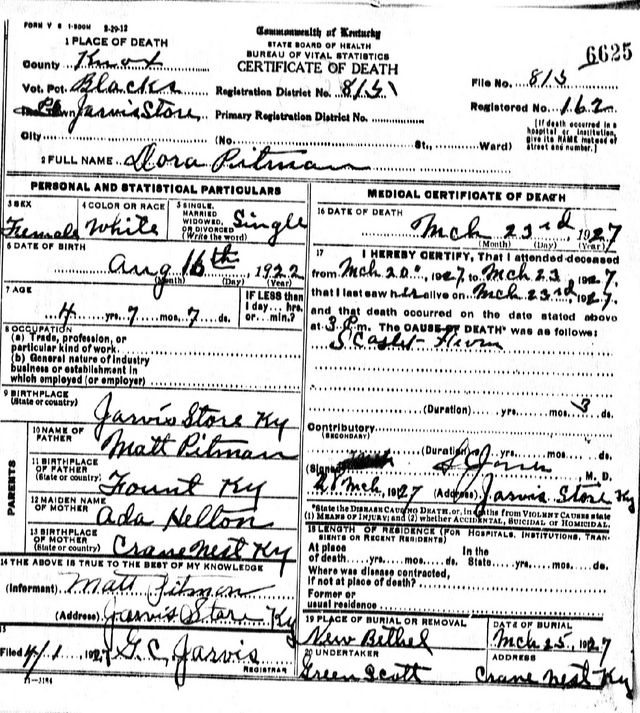 FORM V S 1-500M 2-29-12
Commonwealth of Kentucky
STATE BOARD OF HEALTH
BUREAU OF VITAL STATISTICS
CERTIFICATE OF DEATH
6625
1 PLACE OF DEATH
County Knox
Vot. Pct. Blacks
Registration District No. 8131
File No. 813
Jarvis Store
Primary Registration District No.
Registered No. 162
City (No. St., Ward)
[If death occurred in a hospital or institution, give its NAME instead of street and number.]
2 FULL NAME Dora Pitman
PERSONAL AND STATISTICAL PARTICULARS
3 SEX
Female
4 COLOR OR RACE
White
5 SINGLE, MARRIED WIDOWED, OR DIVORCED (Write the word)
Single
6 DATE OF BIRTH
Aug 16th, 1922
(Month) (Day) (Year)
7 AGE
4 yrs. 7 mos. 7 ds.
IF LESS than 1 day... hrs. or... min.?
8 OCCUPATION
(a) Trade, profession, or particular kind of work
(b) General nature of industry business or establishment in which employed (or employer)
9 BIRTHPLACE
(State or country)
Jarvis Store Ky
PARENTS
10 NAME OF FATHER
Matt Pitman
11 BIRTHPLACE OF FATHER
(State or country)
Fount Ky
12 MAIDEN NAME OF MOTHER
Ada Helton
13 BIRTHPLACE OF MOTHER
(State or country)
Crane Nest Ky
14 THE ABOVE IS TRUE TO THE BEST OF MY KNOWLEDGE
(Informant) Matt Pitman
(Address) Jarvis Store Ky
15
Filed 4/1 1927 G. C. Jarvis
REGISTRAR
11-3194
MEDICAL CERTIFICATE OF DEATH
16 DATE OF DEATH
Mch 23rd, 1927
(Month) (Day) (Year)
17 I HEREBY CERTIFY, That I attended deceased
from Mch 20", 1927, to Mch 23, 1927,
that I last saw her alive on Mch 23rd, 1927,
and that death occurred on the date stated above
at 3 P.m. The CAUSE OF DEATH* was as follows:
Scarlet Fever
(Duration) yrs. mos. 3 ds.
Contributory
(SECONDARY)
(Duration) yrs. mos. ds.
(Signed) M. D.
Mch, 1927 (Address) Jarvis Store Ky
*State the DISEASE CAUSING DEATH, or, in deaths from VIOLENT CAUSES state (1) MEANS OF INJURY; and (2) whether ACCIDENTAL, SUICIDAL or HOMICIDAL.
18 LENGTH OF RESIDENCE (FOR HOSPITALS, INSTITUTIONS, TRANSIENTS OR RECENT RESIDENTS)
At place of death yrs. mos. ds. In the State yrs. mos. ds.
Where was disease contracted, if not at place of death?
Former or usual residence
19 PLACE OF BURIAL OR REMOVAL
New Bethel
DATE OF BURIAL
Mch 25, 1927
20 UNDERTAKER
Green Scott
ADDRESS
Crane Nest Ky